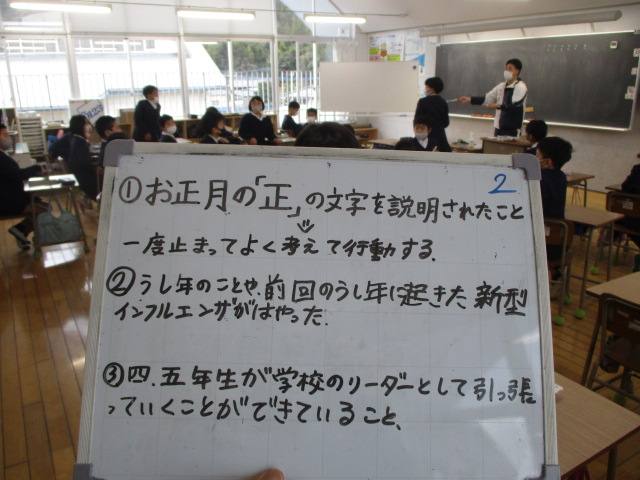 2
①お正月の「正」の文字を説明されたこと
一度止まってよく考えて行動する.
②うし年のことや、前回のうし年に起きた新型
インフルエンザがはやった.
③四、五年生が学校のリーダーとして引っ張
っていくことができていること、